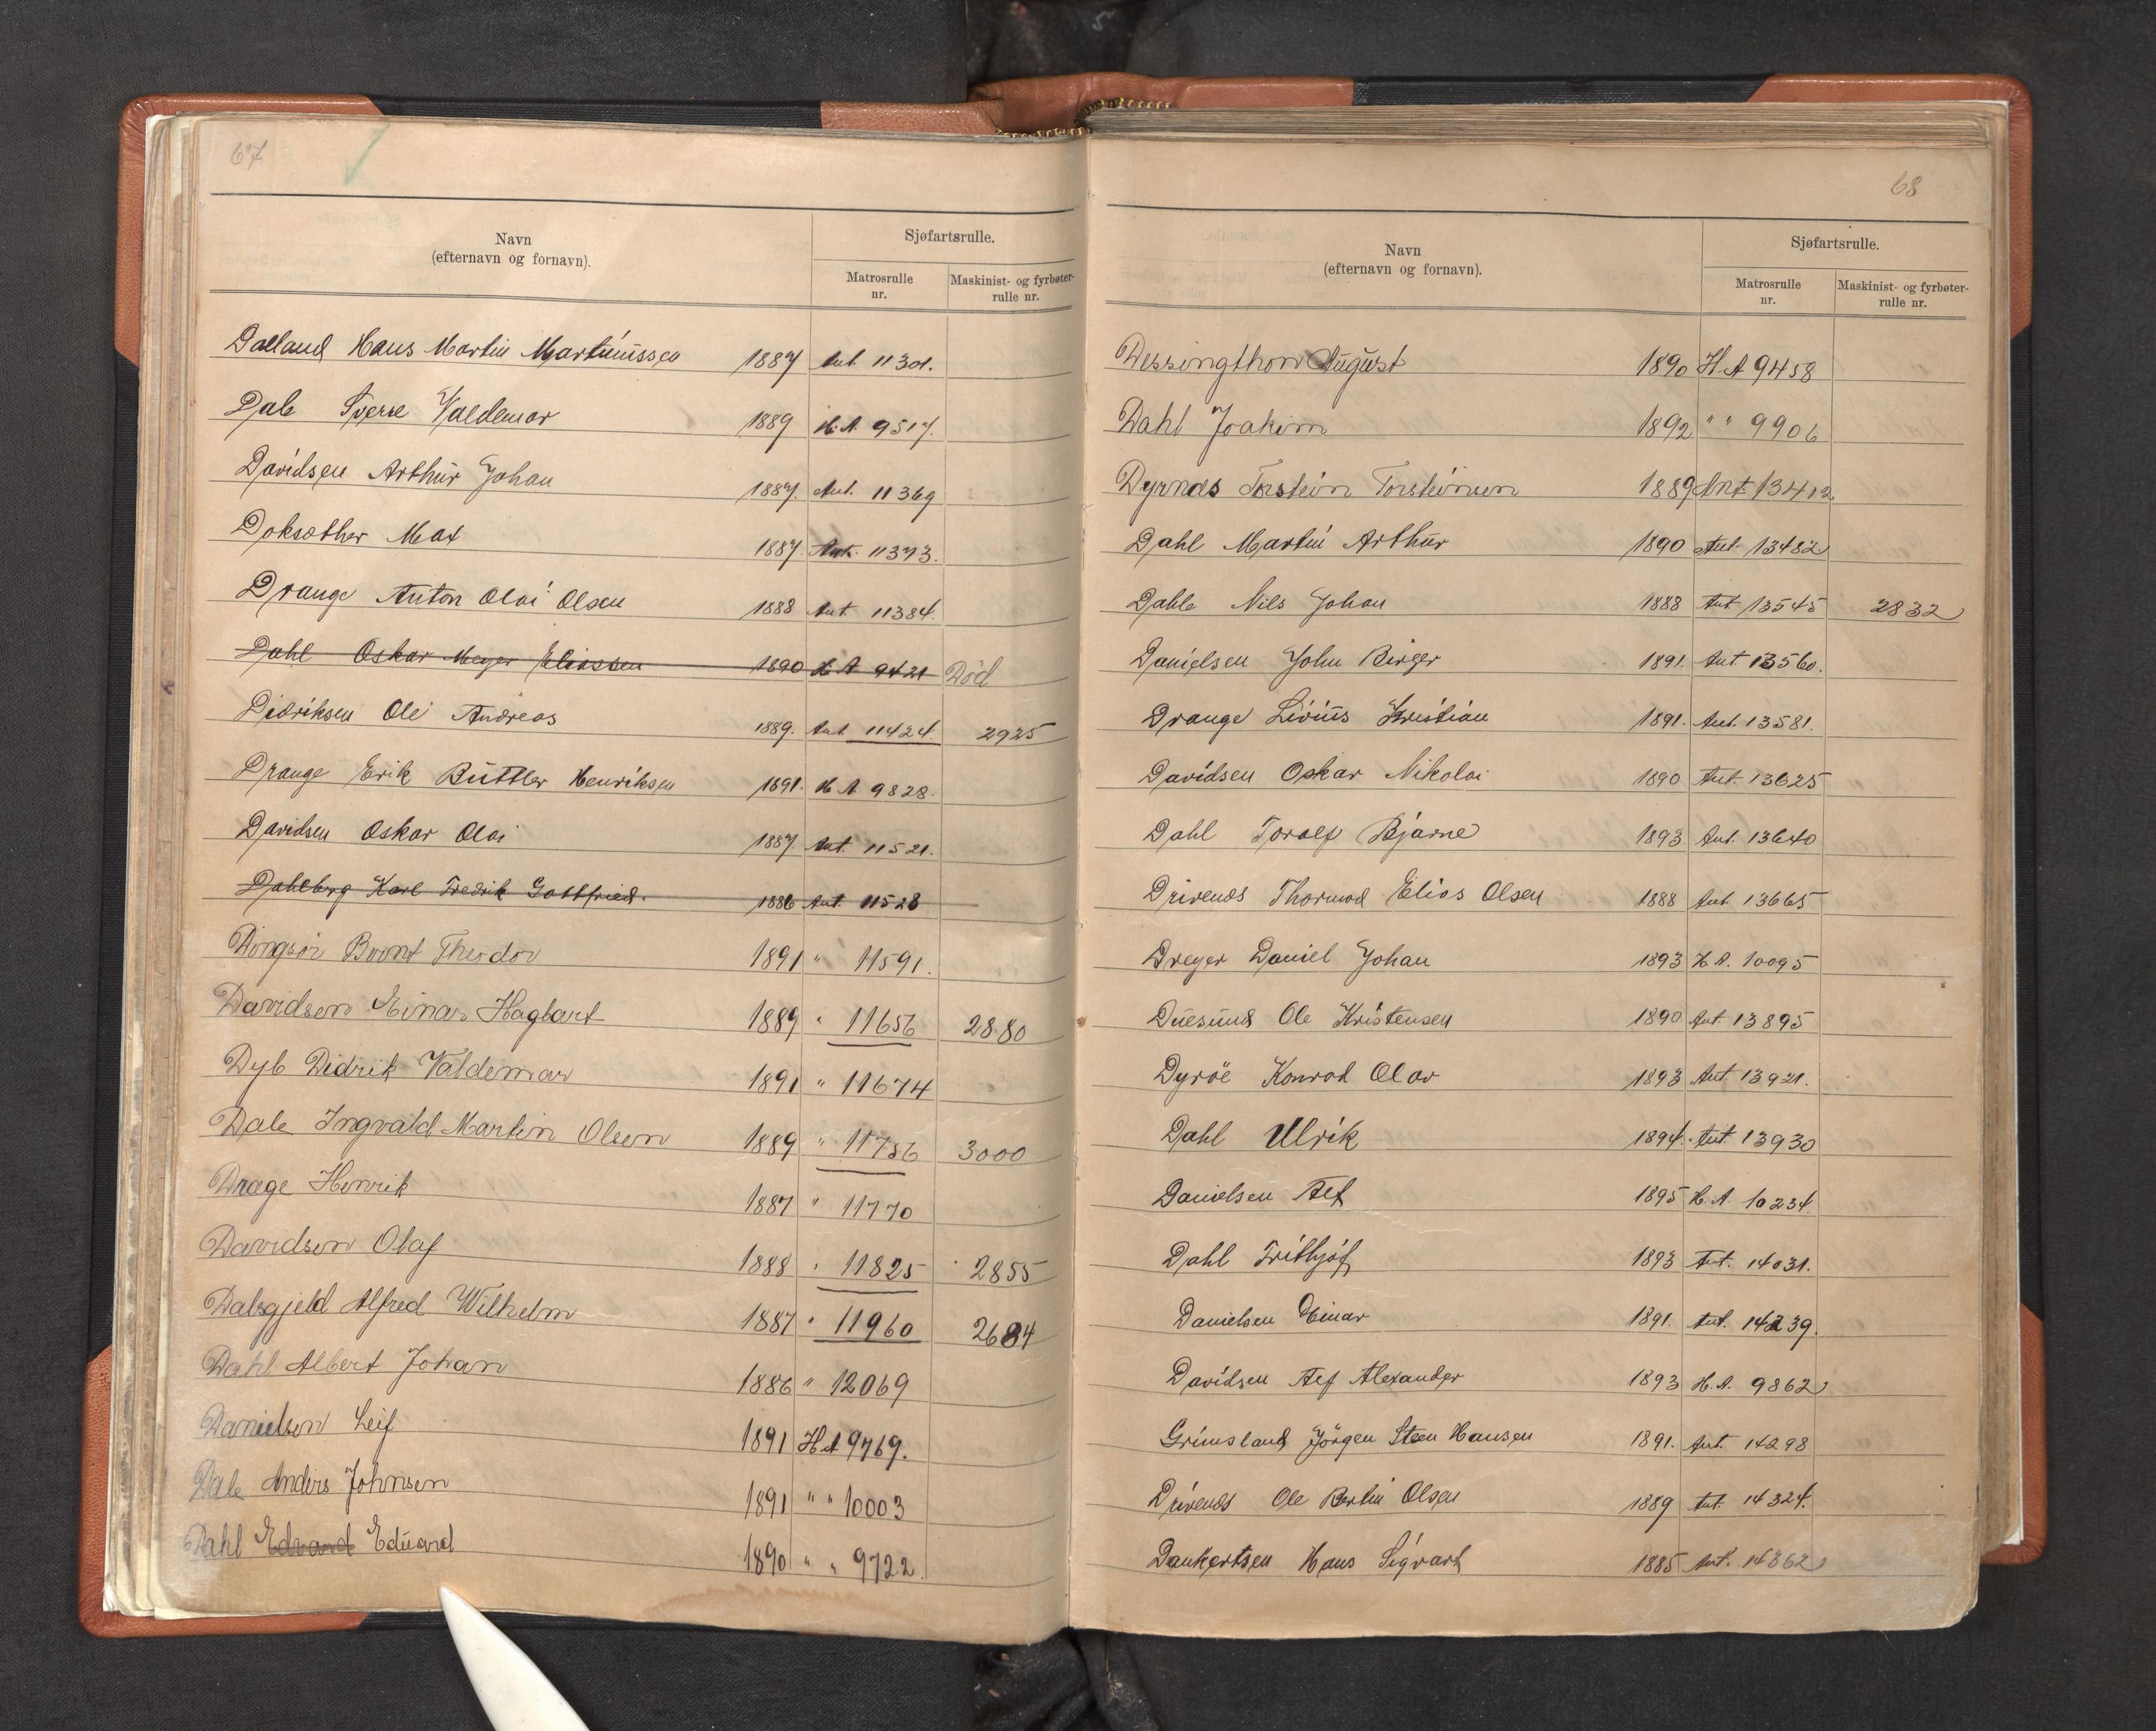 67
Navn
(efternavn og fornavn).
Sjøfartsrulle.
Matrosrulle
nr.
Maskinist- og fyrbøter-
rulle nr.
Dalland Hans Martin Martinussen 1887 Ant. 11301.
Dale Sverre Valdemar 1889 H.A. 9517.
Davidsen Arthur Johan 1887. Ant. 11369
Doksæther Max 1887. Ant. 11373.
Drange Anton Olai Olsen 1888 Ant. 11384.
Dahl Oskar Meyer Eliassen 1890 H A 9421 Död
Didriksen Ole Andreas 1889. Ant 11424 2925
Drange Erik Büttler Henriksen 1891. H A 9828.
Davidsen Oskar Olai 1887. Ant. 11521.
Dahlberg Karl Fredrik Gottfried. 1886 Ant. 11528
Dingsör Bernt Theodor 1891 " 11591.
Davidsen Einar Hagbart 1889 " 11656 2880
Dyb Didrik Valdemar 1891 " 11674
Dale Ingvald Martin Olsen 1889 " 11756 3000
Drage Henrik 1887 " 11770
Davidsen Olaf 1888 " 11825 2855
Dalsgjeld Alfred Wilhelm 1887 " 11960 2684
Dahl Albert Johan 1886 " 12069
Danielsen Leif 1891 H A 9769.
Dale Anders Johnsen 1891 " " 10003
Dahl Edvard Eduard 1890 " " 9722.
68
Navn
(efternavn og fornavn).
Sjøfartsrulle.
Matrosrulle
nr.
Maskinist- og fyrbøter-
rulle nr.
Dessingthon August 1890 H. A 9458
Dahl Joakim 1892 " " 9906
Dyrnes Torstein Torsteinsen 1889 Ant 13412
Dahl Martin Arthur 1890 Ant. 13482
Dahle Nils Johan 1888 Ant 13545 2832
Danielsen John Birger 1891. Ant 13560.
Drange Livius Kristian 1891. Ant. 13581.
Davidsen Oskar Nikolai 1890 Ant. 13625
Dahl Toralf Bjarne 1893 Ant. 13640
Drivenes Thormod Elias Olsen 1888 Ant. 13665
Dreyer Daniel Johan 1893 H A. 10095
Duesund Ole Kristensen 1890 Ant 13895
Dyröe Konrad Olav 1893 Ant 13921.
Dahl Ulrik 1894. Ant 13930
Danielsen Alf 1895 H. A. 10234.
Dahl Frithjof 1893 Ant. 14031.
Danielsen Einar 1891. Ant. 14239.
Davidsen Alf Alexander 1893 H. A. 9862
Grimsland Jörgen Steen Hansen 1891. Ant. 14298
Drivenes Ole Bertin Olsen 1889 Ant. 14324.
Dankertsen Hans Sigvart 1885 Ant. 14362